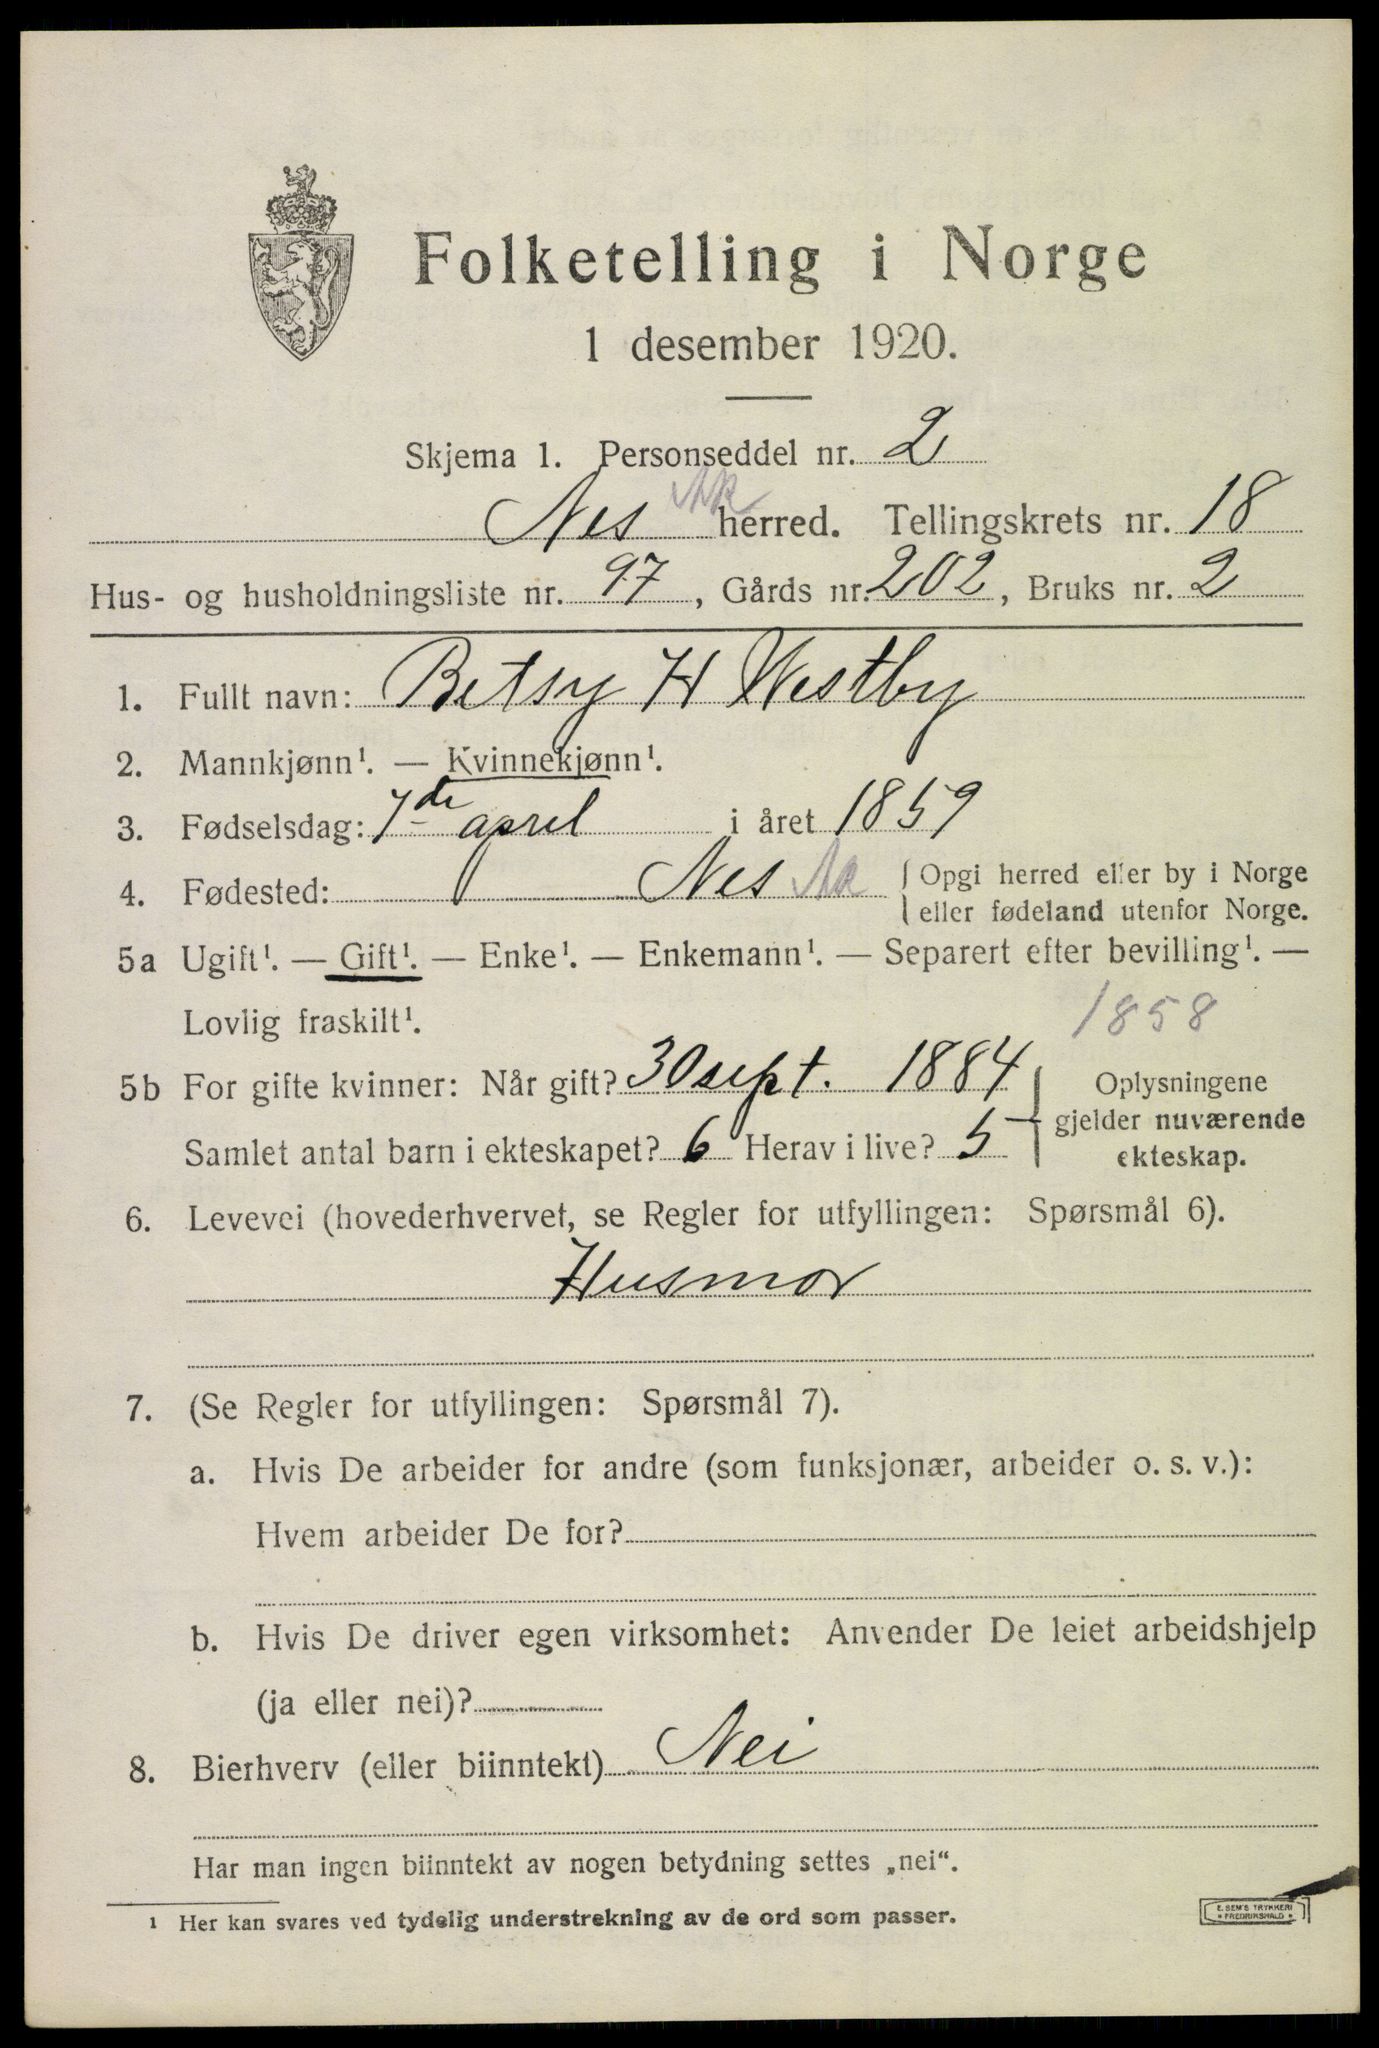 Folketelling i Norge
1 desember 1920.
Skjema 1. Personseddel nr. 2
Nes Ak herred. Tellingskrets nr. 18
Hus- og husholdningsliste nr. 97, Gårds nr. 202, Bruks nr. 2
1. Fullt navn: Betsy H Westby
2. Mannkjønn¹. — Kvinnekjønn¹.
3. Fødselsdag: 7de april i året 1859
4. Fødested: Nes Ak { Opgi herred eller by i Norge
eller fødeland utenfor Norge.
5a Ugift¹. — Gift¹. — Enke¹. — Enkemann¹. — Separert efter bevilling¹. —
Lovlig fraskilt¹. 1858
5b For gifte kvinner: Når gift? 30 sept. 1884 Oplysningene
gjelder nuværende
Samlet antal barn i ekteskapet? 6 Herav i live? 5 ekteskap.
6. Levevei (hovederhvervet, se Regler for utfyllingen: Spørsmål 6).
Husmor
7. (Se Regler for utfyllingen: Spørsmål 7).
a. Hvis De arbeider for andre (som funksjonær, arbeider o. s. v.):
Hvem arbeider De for?
b. Hvis De driver egen virksomhet: Anvender De leiet arbeidshjelp
(ja eller nei)?
8. Bierhverv (eller biinntekt) Nei
Har man ingen biinntekt av nogen betydning settes „nei“.
¹ Her kan svares ved tydelig understrekning av de ord som passer.
E. SEM'S TRYKKERI
* FREDRIKSHALD *